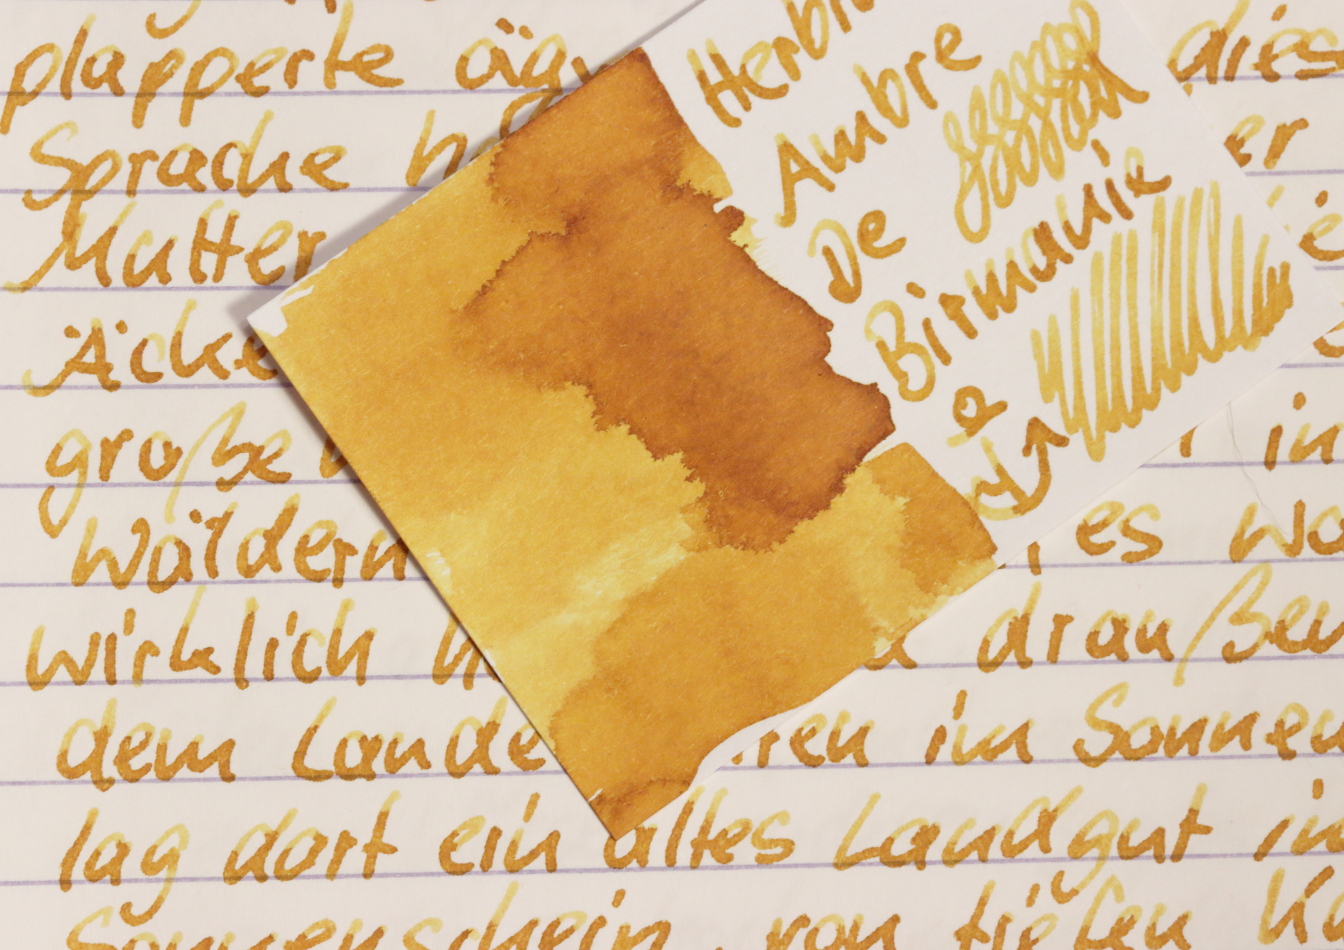 plapperte
Sprache
Mutter
Äcke
große
Wäldern
es
wirklich
draußen
dem Lande
im Sonnen
lag dort ein altes Landgut in
Sonnenschein, von tiefen
Ambre
De
Birmanie